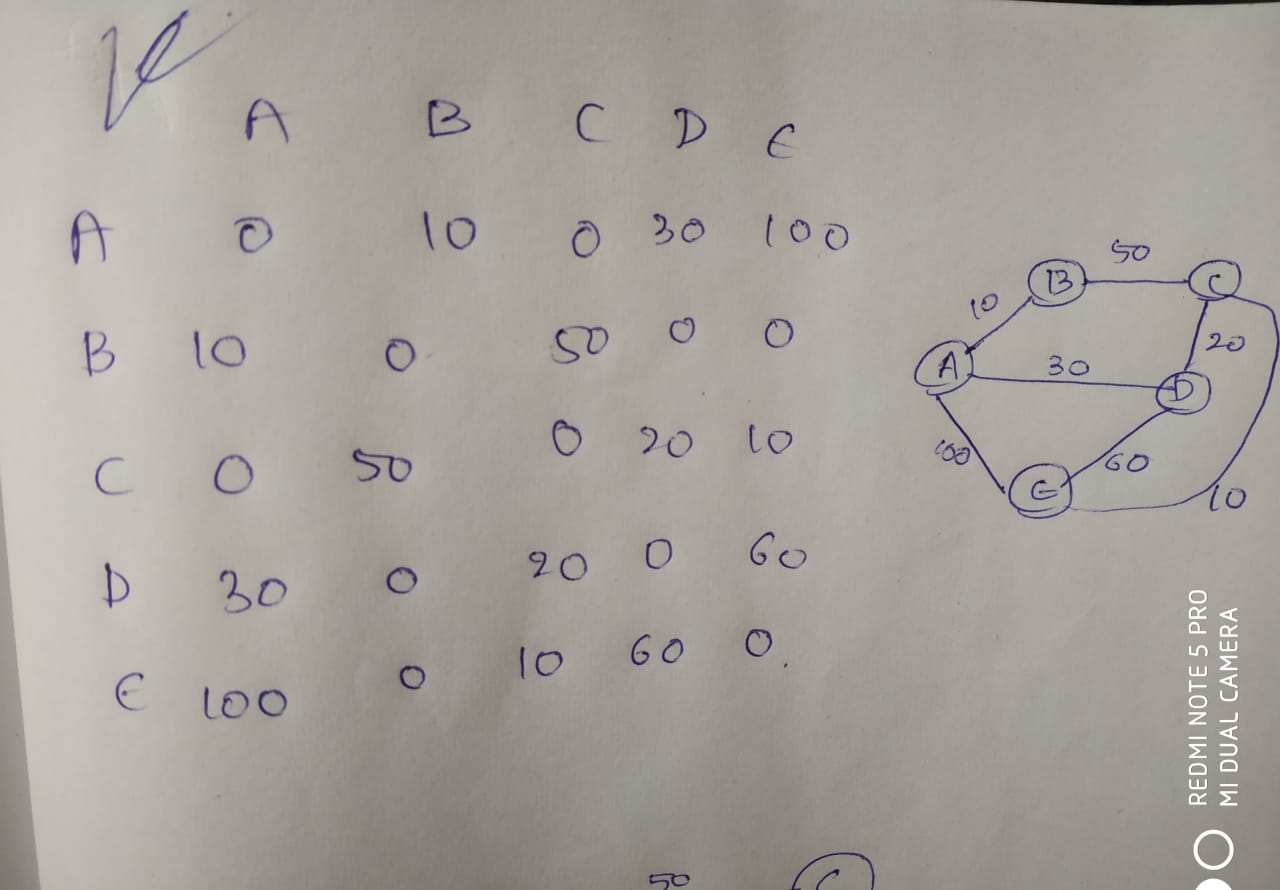 A B C D E
A 0 10 0 30 100
B 10 0 50 0 0
C 0 50 0 20 10
D 30 0 20 0 60
E 100 0 10 60 0.
50
B C
10
20
A 30 D
100
60
E
10
50
C
REDMI NOTE 5 PRO
MI DUAL CAMERA